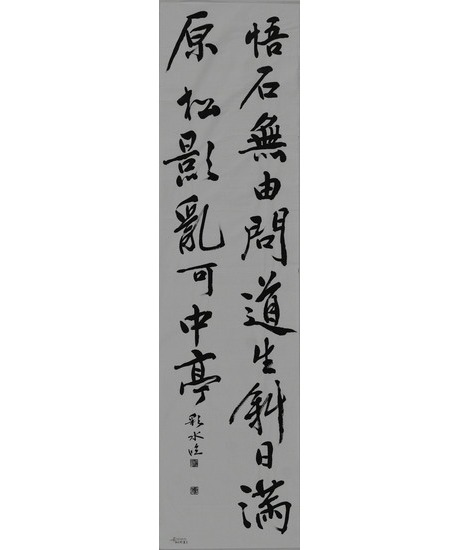 悟石無由問道生斜日滿
原松影亂可中亭
彩水